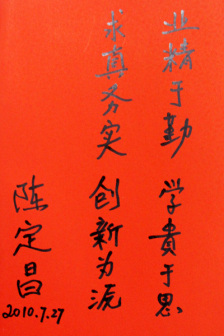 业精于勤 学貴于思
求真务实 创新为流
陈定昌
2010.7.27